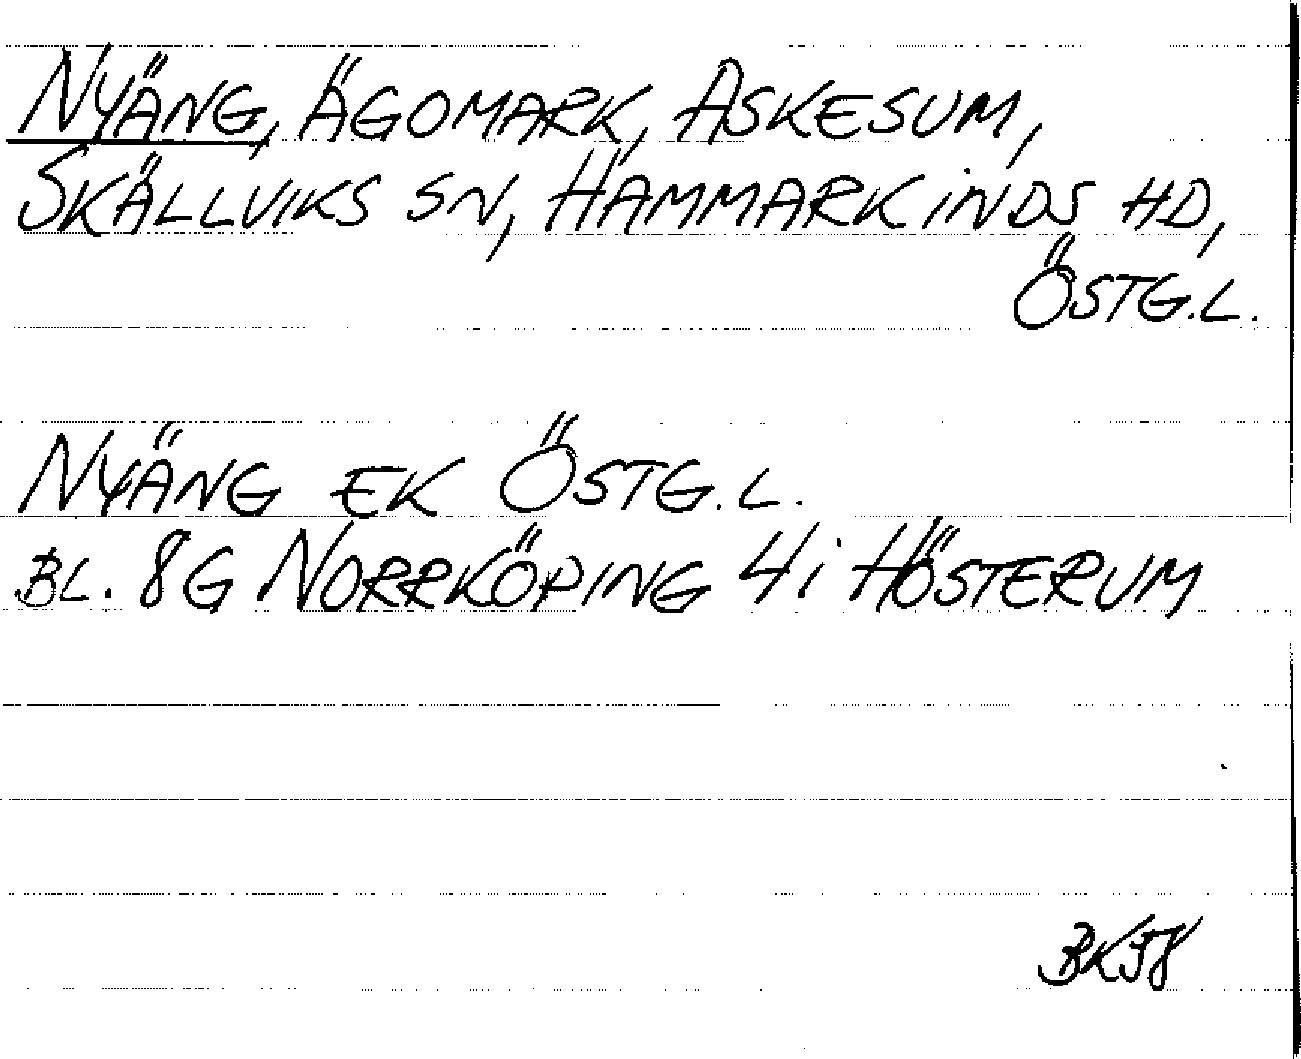 NYÄNG, ÄGOMARK, ASKESUM,
SKÄLLVIKS SN, HAMMARKINDS HD,
ÖSTG.L.
NYÄNG EK ÖSTG.L.
BL. 8G NORRKÖPING 4i HÖSTERUM